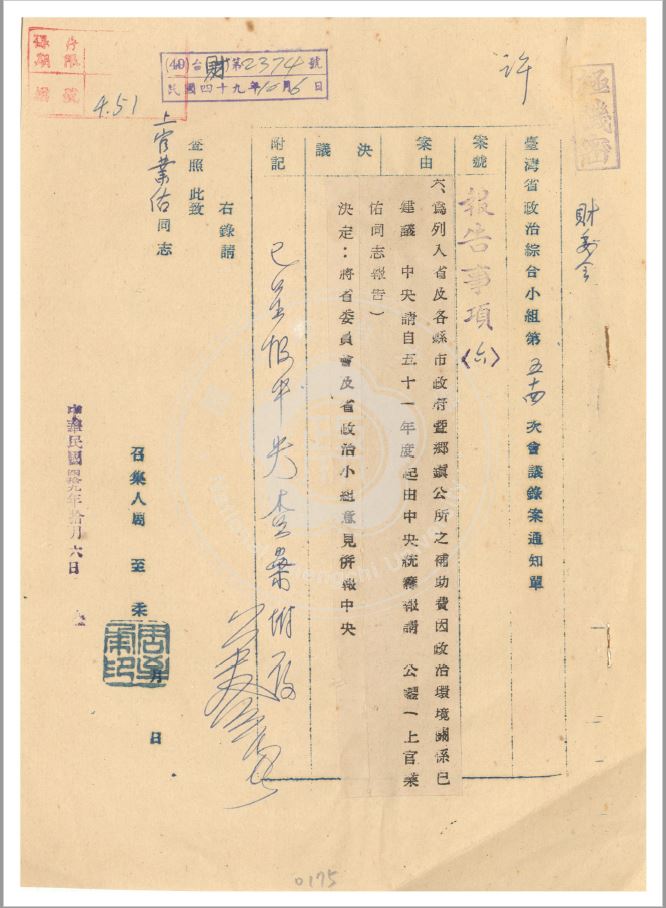 極機密
財委會
許
臺灣省政治綜合小組第五十四次會議錄案通知單
案號
報告事項〈六〉
案由
六、為列入省及各縣市政府暨鄉鎮公所之補助費因政治環境關係已
建議 中央請自五十一年度起由中央統籌報請 公鑒(上官業
佑同志報告)
決議
決定:將省委員會及省政治小組意見併報中央
附記
已呈報中央
右錄請
查照 此致
上官業佑同志
召集人周至柔
月 日
中華民國四拾九年拾月六日
(40)台(財)第2374號
民國四十九年10月6日
保存
期限
編號
4.51
0175